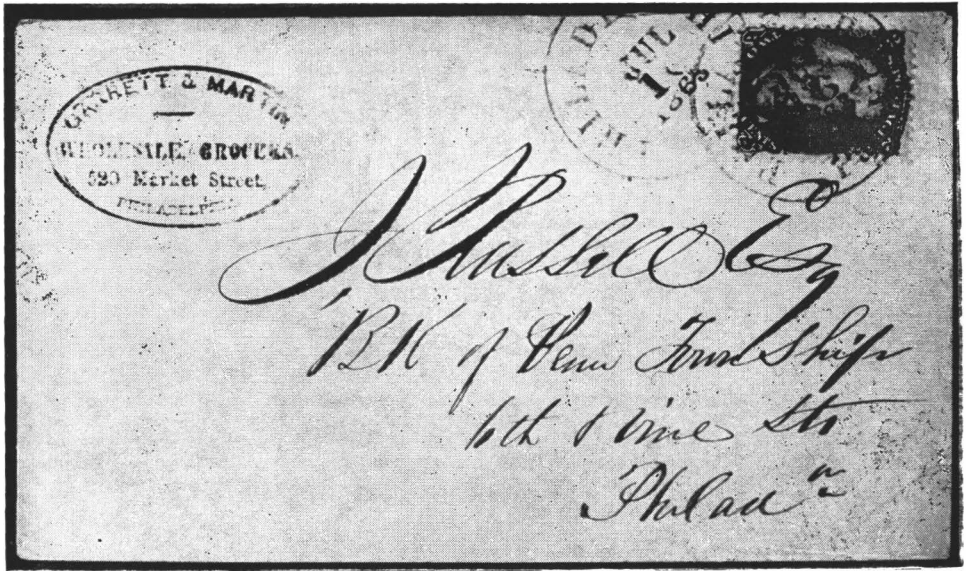 GARRETT & MARTIN
WHOLESALE GROCERS.
520 Market Street,
PHILADELPHIA
PHILADELPHIA
JUL
1
1863
J Russell Esq
BK of Penn Township
6th & Vine Sts
Philada